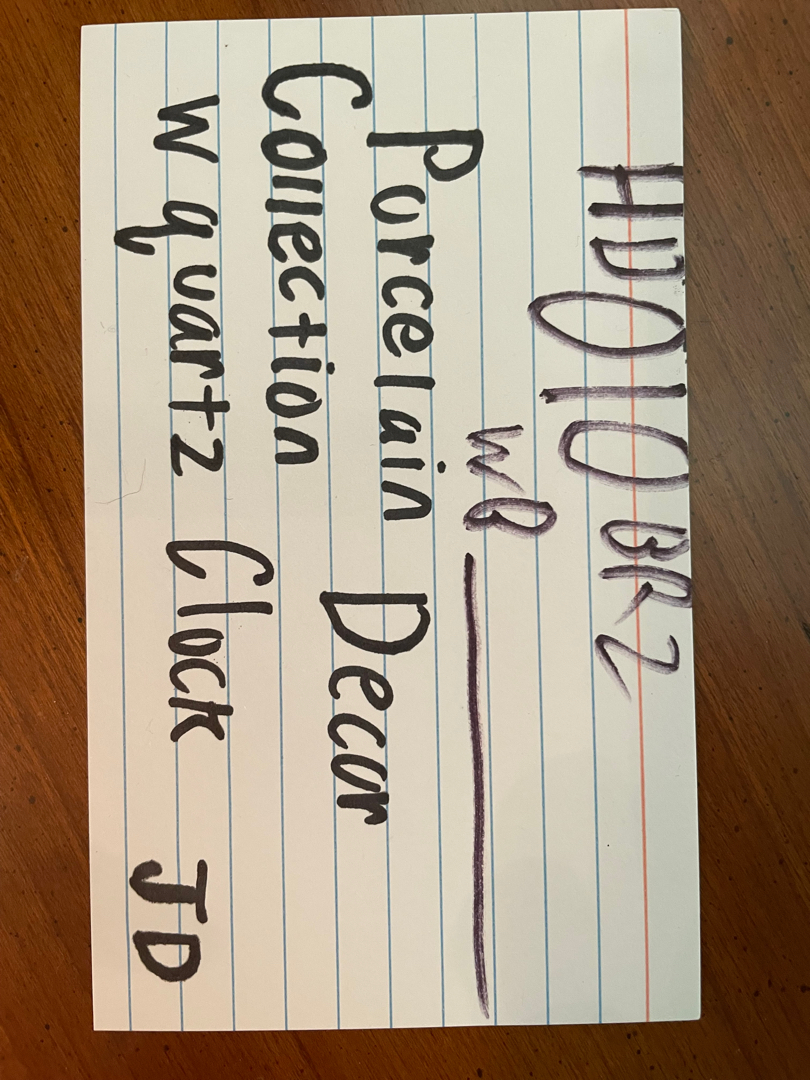 HD010 BR2
WB
Porcelain Decor
Collection
W quartz Clock JD